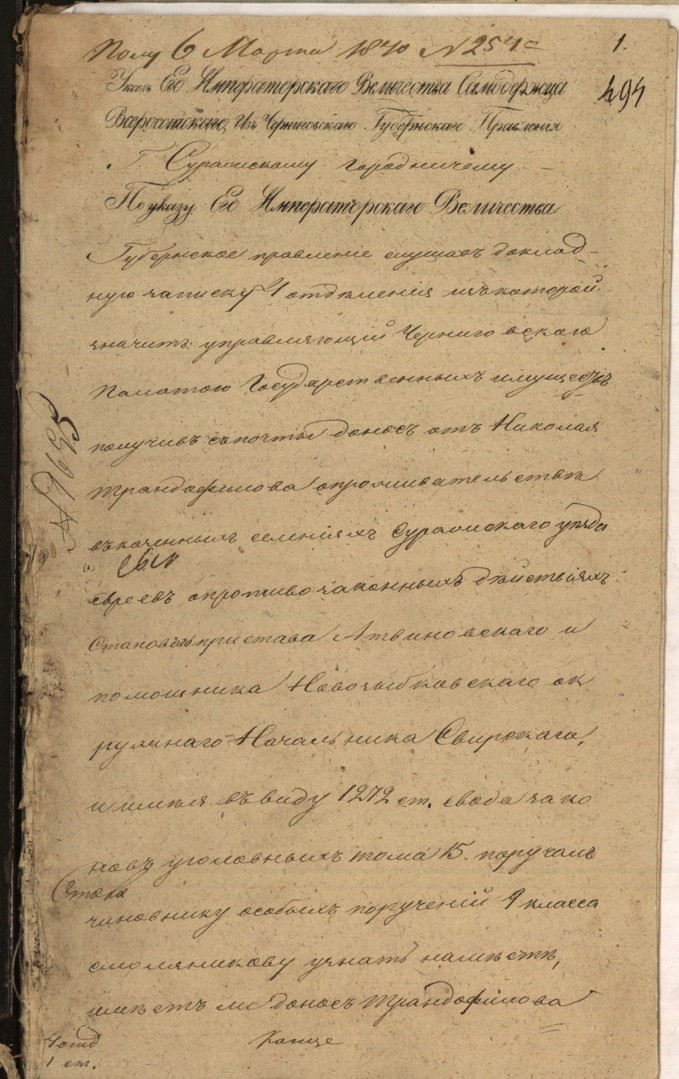 Полу 6 Марта 1840 N 254
1.
494
Указъ Его Императорскаго Величества Самодержца
Всероссійскаго, Изъ Черниговскаго Губернскаго Правленія
Г. Суражскому городничему
По указу Его Императорскаго Величества
Губернское правленіе слушавъ доклад-
ную записку 4 отдѣленія изъ которой
значитъ: управляющій Черниговскаго
Палатою Государственныхъ имуществъ
получивъ съ почты доносъ отъ Николая
Трандафилова о проживательствѣ
въ казенныхъ селеніяхъ Суражскаго уѣзда
евреевъ о противозаконныхъ дѣйствіяхъ
Становаго пристава Литвиновскаго и
помощника Новозыбковскаго ок
ружнаго Начальника Свирскаго,
и имѣя въ виду 1272 ст. свода зако
новъ уголовныхъ тома 15. поручалъ
чиновнику особыхъ порученій 9 класса
Смолянникову узнать на мѣстѣ,
имѣетъ ли доносъ Трандафилова
4 отд
1 ст.